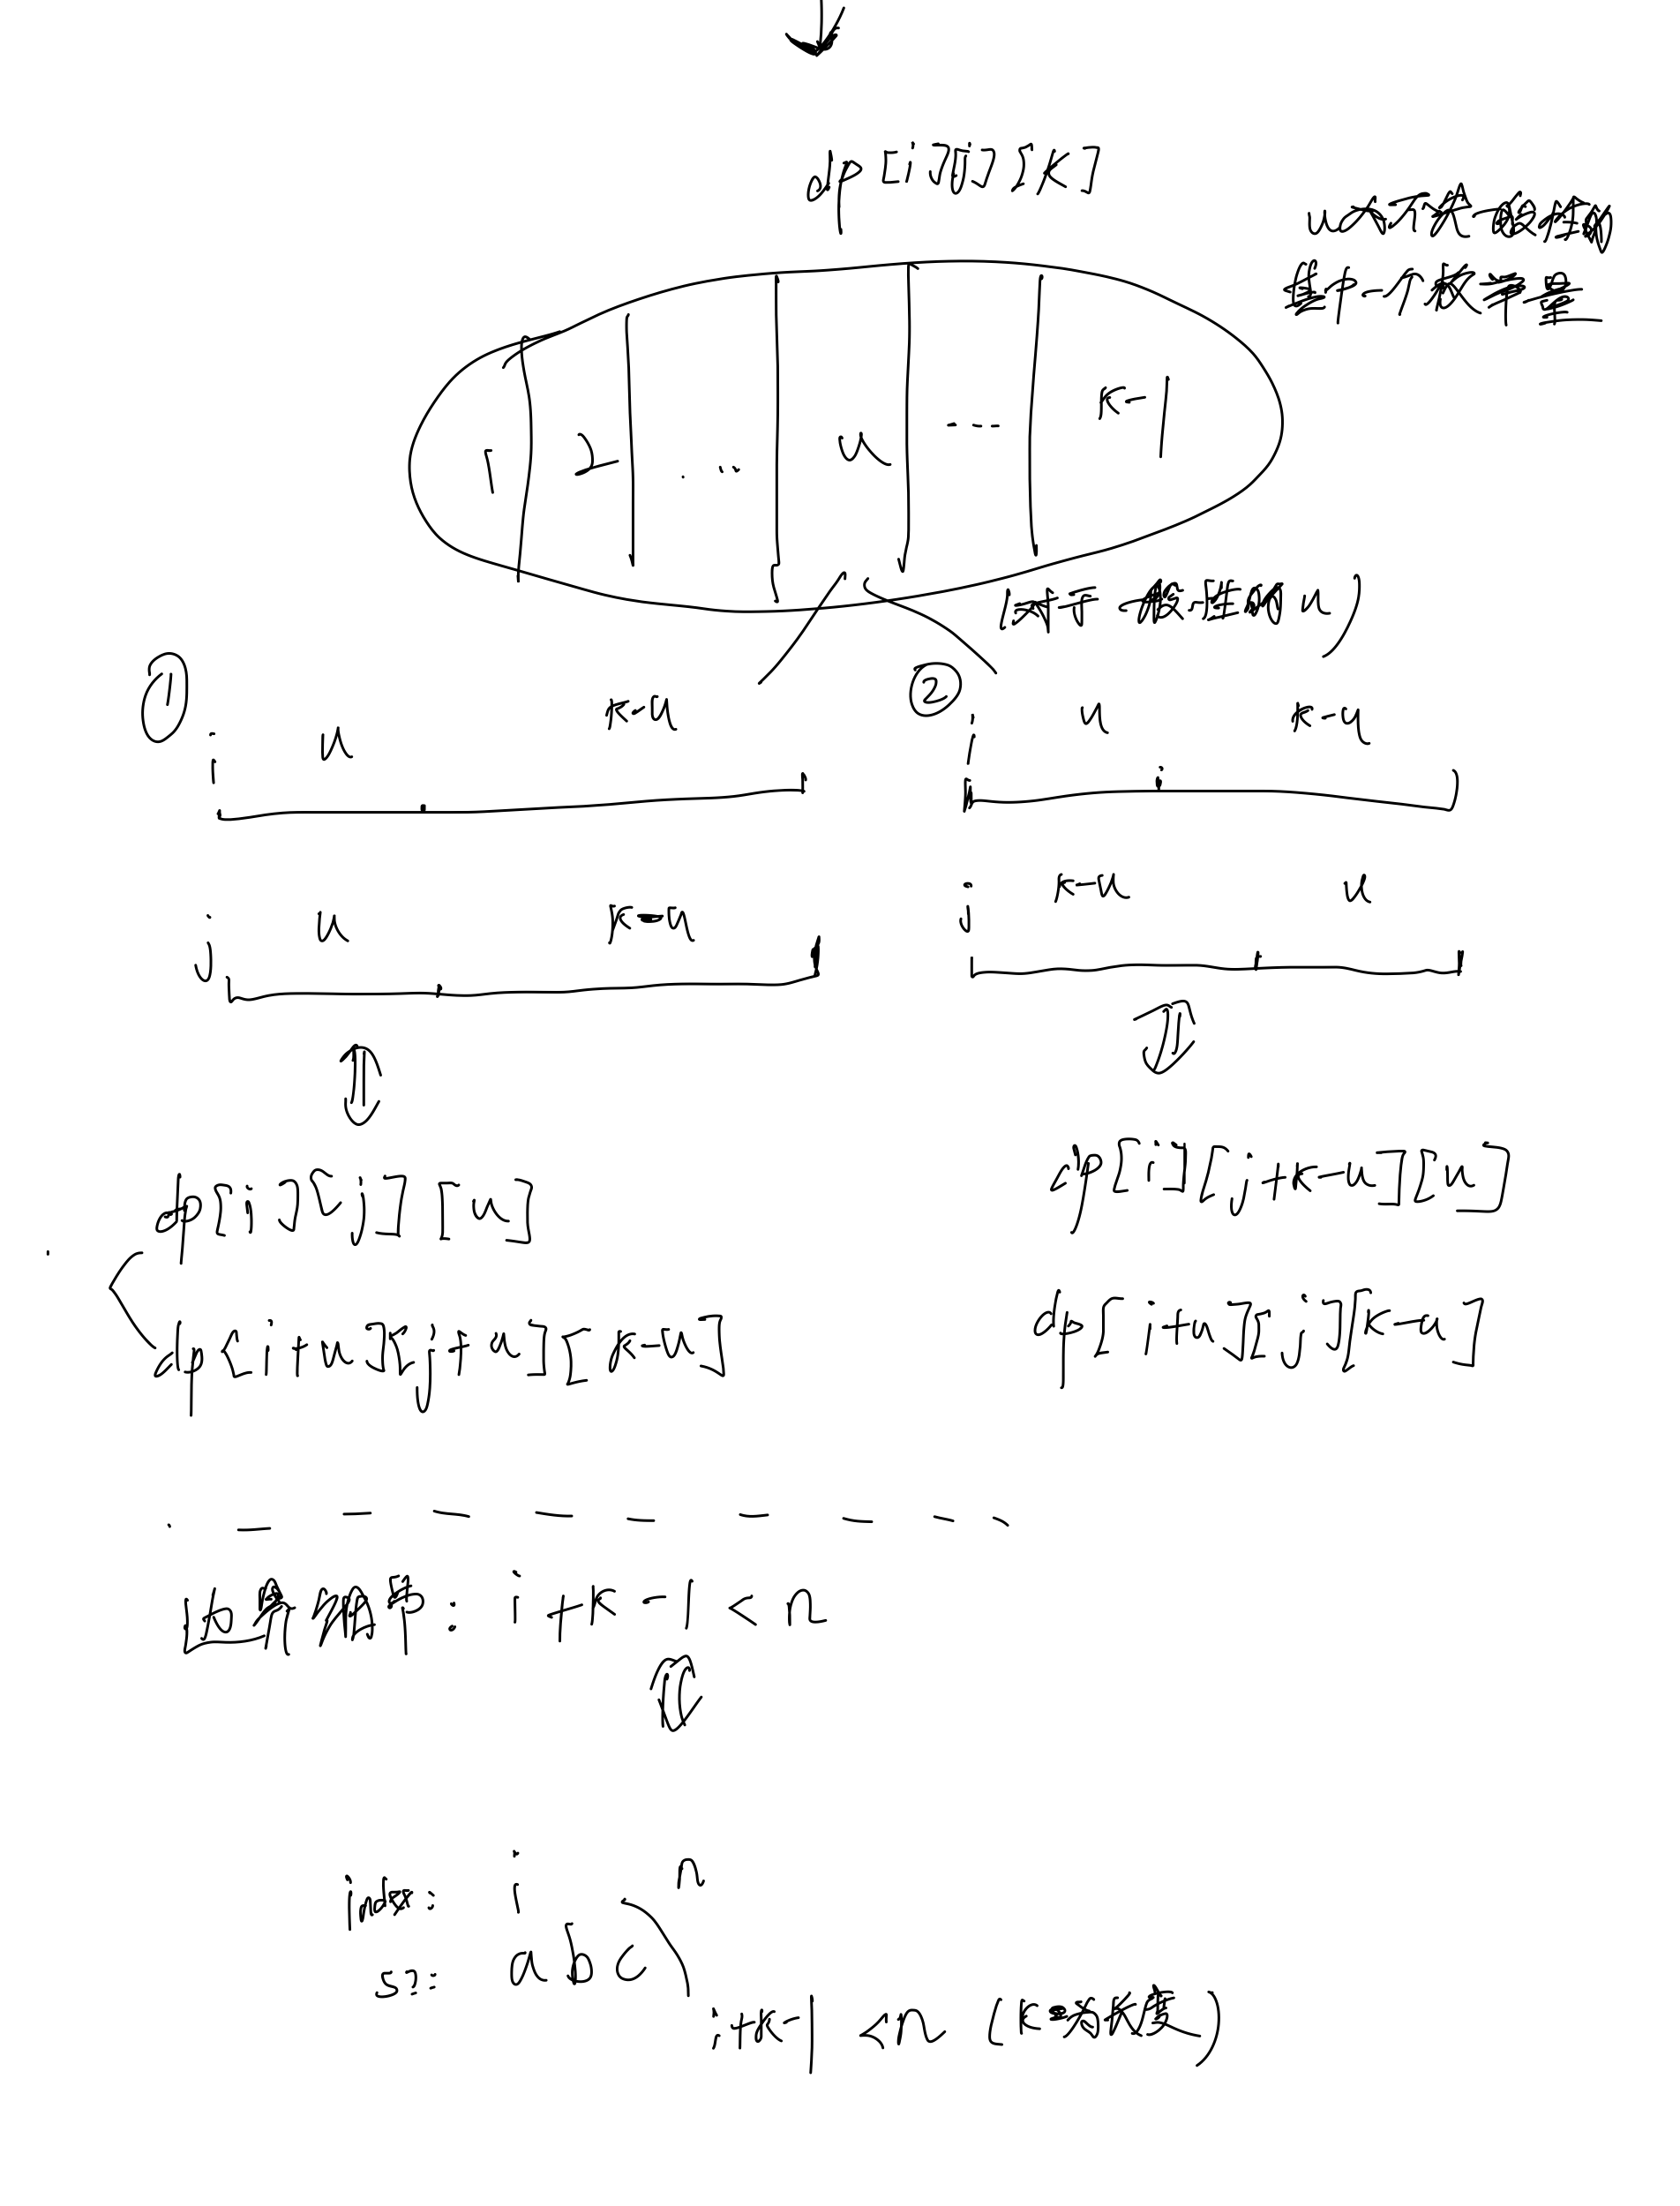 dp[i][j][k]
u从不失一般性的
集中一个枚举量
1 2 ... u ... k-1
(对于一般性的u)
① ②
i u k-u
i u k-u
j u k-u
j k-u u
dp[i][j][u]
dp[i][j+k-u][u]
dp[i+u][j+u][k-u]
dp[i+u][j][k-u]
边界细节: i+k-1<n
index: i n
s1: a b c
i+k-1<n (k为长度)